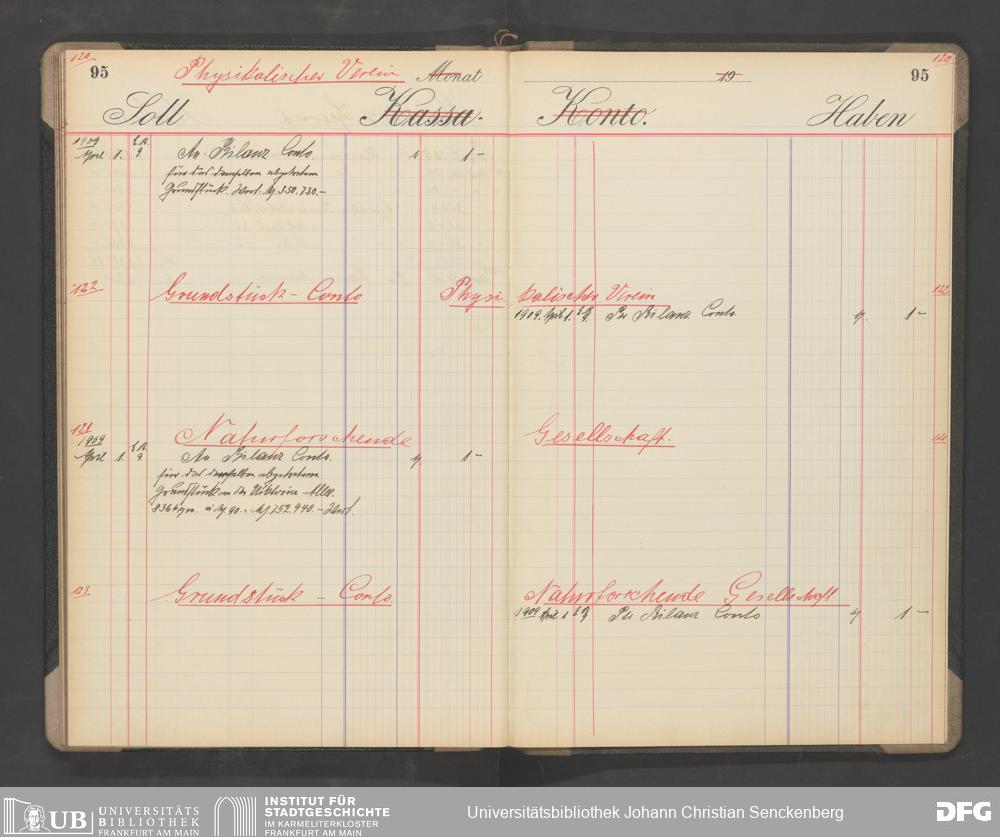 120
95
Physikalischer Verein Monat
19
120
95
Soll
Kassa-
Konto.
Haben
1909
April 1. 9.
An Bilanz Conto.
M 1 -
für das demselben abgetretene
Grundstück. Wert: M. 350.730.-
122
Grundstück - Conto
Physikalischer Verein
122
1909. April 1. 9 Per Bilanz Conto
M. 1 -
121
Naturforschende
Gesellschaft.
121
1909
April 1. 9.
An Bilanz Conto.
M. 1 -
für das demselben abgetretene
Grundstück an der Viktoria Allee.
8366 qm. à M 90.- M. 752.940.- Wert.
123
Grundstück - Conto
Naturforschende Gesellschaft
1909 April 1 9 Per Bilanz Conto
M 1 -
UB UNIVERSITÄTS
BIBLIOTHEK
FRANKFURT AM MAIN
INSTITUT FÜR
STADTGESCHICHTE
IM KARMELITERKLOSTER
FRANKFURT AM MAIN
Universitätsbibliothek Johann Christian Senckenberg
DFG